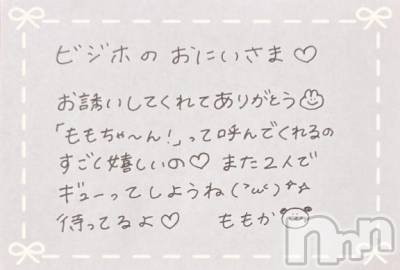 ビジホの おにいさま♡
お誘いしてくれてありがとう
「ももちゃ〜ん!」って呼んでくれるの
すごく嬉しいの♡ また2人で
ギューってしようね(>ω<)
待ってるよ♡ ももか